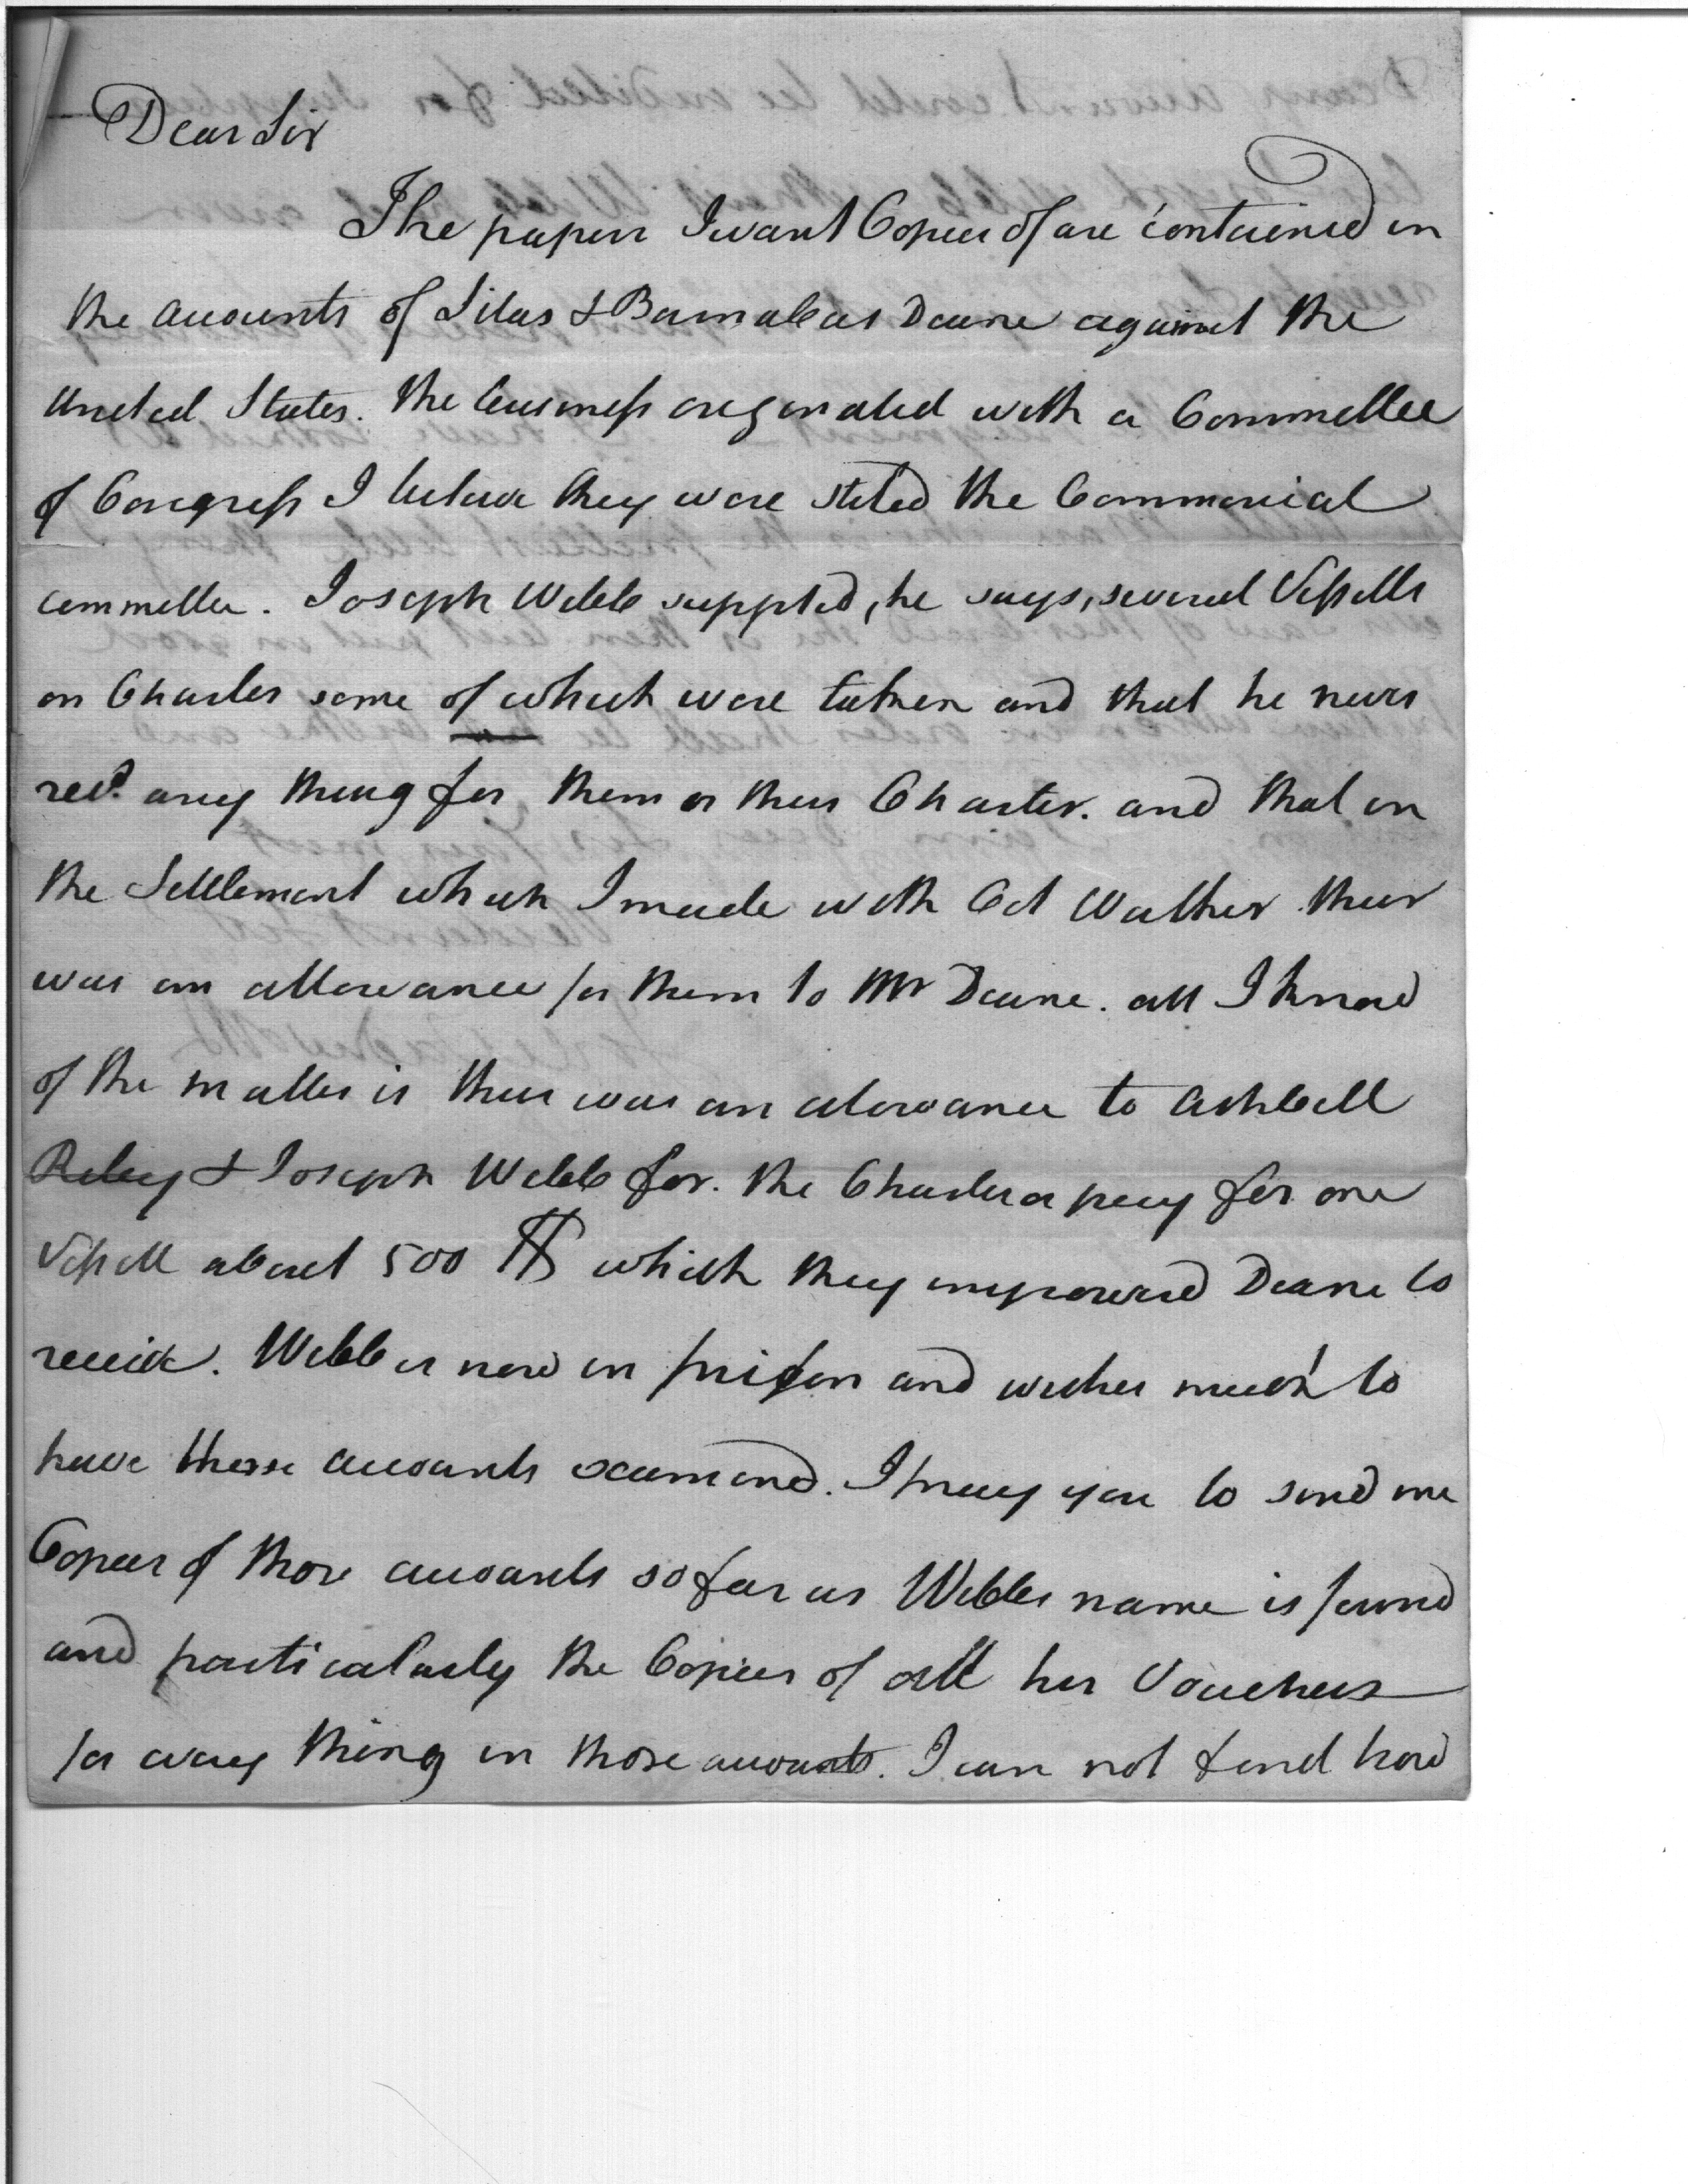 Dear Sir
The papers I want Copies of are contained in
the accounts of Silas & Barnabas Deane against the
United States. the business originated with a Committee
of Congress I beleive they were stiled the Commercial
committee. Joseph Webb supplied, he says, several Vessells
on Charter some of which were taken and that he never
recd. any thing for them or their Charter. and that in
the Settlement which I made with Col Walker there
was an allowance for them to Mr Deane. all I know
of the matter is there was an alowance to Ashbell
Riley & Joseph Webb for. the Charter or pay for one
Vessell about 500 $ which they impowered Deane to
receive. Webb is now in prison and wishes much to
have these accounts examined. I pray you to send me
Copies of those accounts so far as Webbs name is found
and particularly the Copies of all his Vouchers
for every thing in those accounts. I can not find how